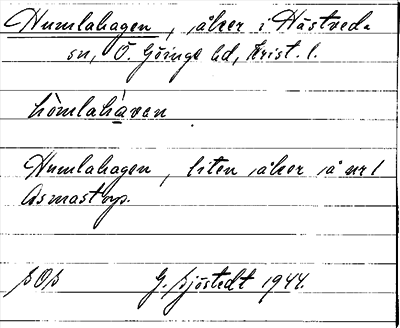 Humlahagen, åker i Hästveda
sn, Ö. Göinge hd, Krist. l.
hòmlahàvan
Humlahagen, liten åker å nr 1
Asmastorp.
SOS G. Sjöstedt 1944.